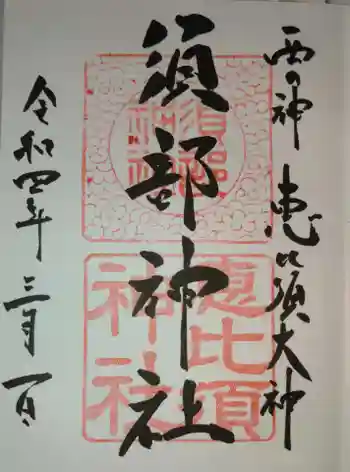 西の神 恵比須大神
須部神社
須部神社
恵比須神社
令和四年三月一日